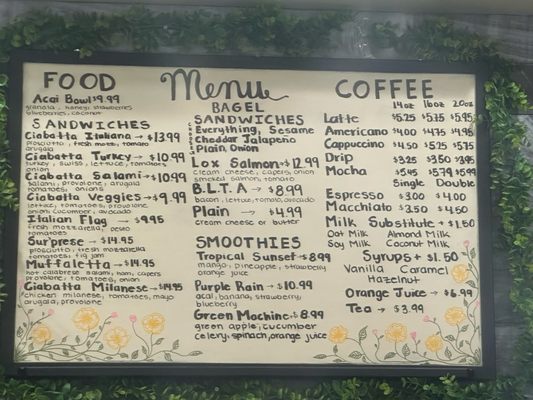 Menu
FOOD
Acai Bowl $9.99
granola, honey, strawberries
blueberries, coconut
SANDWICHES
Ciabatta Italiana → $13.99
prosciutto, fresh mozz, tomato
arugula
Ciabatta Turkey → $10.99
turkey, swiss, lettuce, tomatoes,
onion
Ciabatta Salami → $10.99
salami, provolone, arugula
tomatoes, onions
Ciabatta Veggies → $9.99
lettuce, tomatoes, provolone
onion, cucumber, avocado
Italian Flag → $9.95
fresh mozzarella, pesto
tomatoes
Sur'prese → $14.95
prosciutto, fresh mozzarella
tomatoes, fig jam
Muffaletta → $14.95
hot calabrese salami, ham, capers
provolone, tomatoes, onion
Ciabatta Milanese → $14.95
chicken milanese, tomatoes, mayo
arugula, provolone
BAGEL
SANDWICHES
CHOOSE
Everything, Sesame
Cheddar Jalapeño
Plain Onion
Lox Salmon → $12.99
cream cheese, capers, onion
smoked salmon, tomato
B.L.T.A → $8.99
bacon, lettuce, tomato, avocado
Plain → $4.99
cream cheese or butter
SMOOTHIES
Tropical Sunset → $8.99
mango, pineapple, strawberry
orange juice
Purple Rain → $10.99
acai, banana, strawberry,
blueberry
Green Machine → $8.99
green apple, cucumber
celery, spinach, orange juice
COFFEE
14oz 16oz 20oz
Latte $5.25 $5.75 $5.95
Americano $4.00 $4.75 $4.95
Cappuccino $4.50 $5.25 $5.75
Drip $3.25 $3.50 $3.95
Mocha $5.45 $5.79 $5.99
Single Double
Espresso $3.00 $4.00
Macchiato $3.50 $4.50
Milk Substitute + $1.50
Oat Milk Almond Milk
Soy Milk Coconut Milk
Syrups + $1.50
Vanilla Caramel
Hazelnut
Orange Juice → $6.99
Tea → $3.99